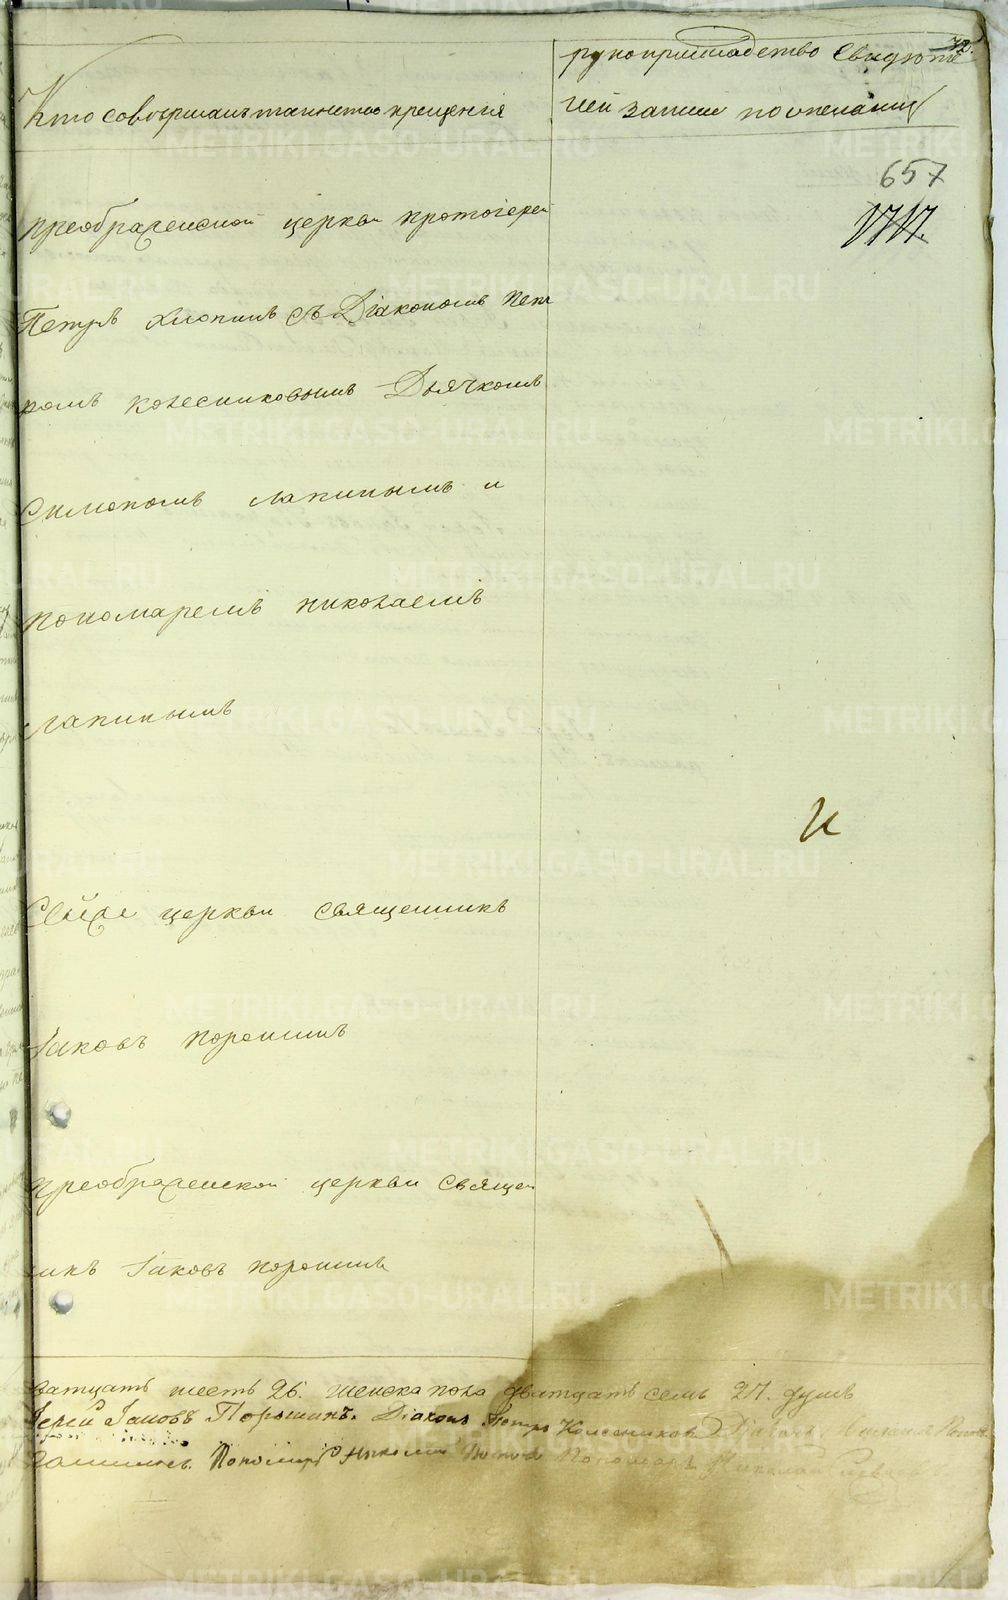 72.
Кто совершалъ таинство крещенія
рукоприкладство Свидѣте
лей записи по желанію
657
преображенской церкви протоіерей
Петръ Хлопинъ съ Діакономъ Пет
ромъ Колесниковымъ Дьячкомъ
Симономъ лапинымъ и
пономаремъ николаемъ
лапинымъ
И
Сейже церкви священникъ
Іаковъ порошинъ
преображенской церкви священ
никъ Іаковъ порошинъ
ватцать шесть 26. женска пола дватцать семь 27. душъ
Іерей Іаковъ Порошинъ. Діаконъ Петръ Колесниковъ
Пономарь Николай
METRIKI.GASO-URAL.RU